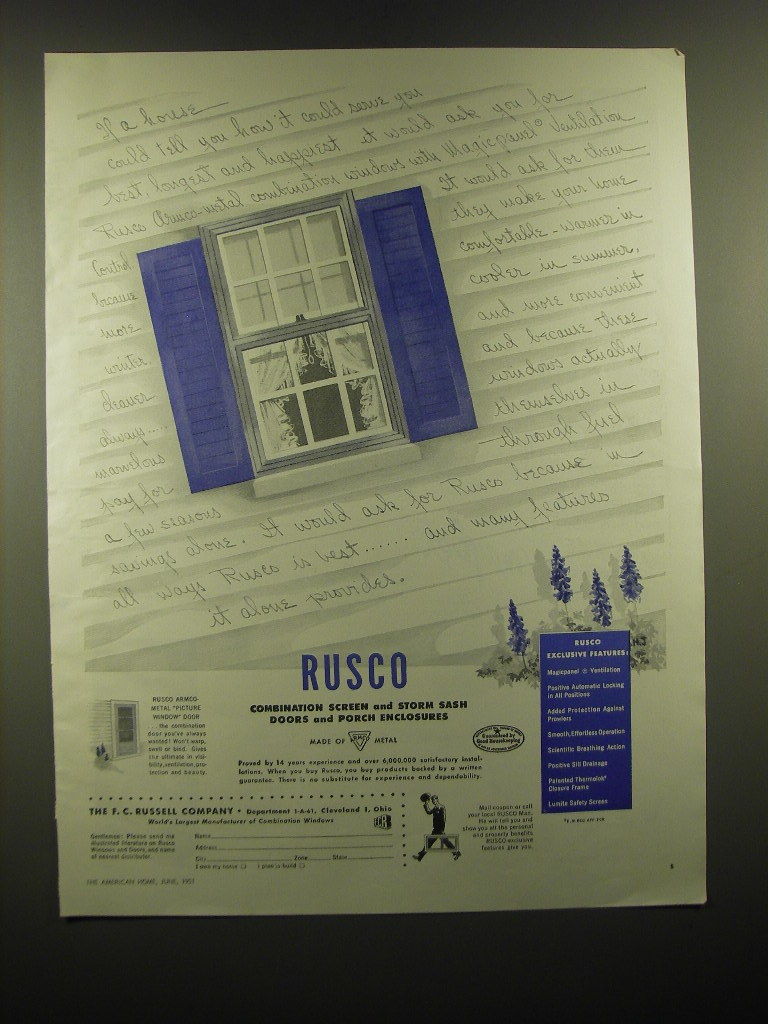 If a house
could tell you how it could serve you
best, longest and happiest it would ask you for
Rusco Armco-metal combination windows with Magicpanel® Ventilation
Control. It would ask for them
because they make your home
more comfortable - warmer in
winter, cooler in summer,
cleaner and more convenient
always..... and because these
marvelous windows actually
pay for themselves in
a few seasons through fuel
savings alone. It would ask for Rusco because in
all ways Rusco is best...... and many features
it alone provides.
RUSCO
COMBINATION SCREEN and STORM SASH
DOORS and PORCH ENCLOSURES
MADE OF ARMCO METAL
Guaranteed by
Good Housekeeping
Proved by 14 years experience and over 6,000,000 satisfactory instal-
lations. When you buy Rusco, you buy products backed by a written
guarantee. There is no substitute for experience and dependability.
RUSCO ARMCO-
METAL "PICTURE
WINDOW" DOOR
... the combination
door you've always
wanted! Won't warp,
swell or bind. Gives
the ultimate in visi-
bility, ventilation, pro-
tection and beauty.
RUSCO
EXCLUSIVE FEATURES:
Magicpanel ® Ventilation
Positive Automatic Locking
in All Positions
Added Protection Against
Prowlers
Smooth, Effortless Operation
Scientific Breathing Action
Positive Sill Drainage
Patented Thermolok*
Closure Frame
Lumite Safety Screen
THE F. C. RUSSELL COMPANY • Department 1-A-61, Cleveland 1, Ohio
World's Largest Manufacturer of Combination Windows
FCR
Gentlemen: Please send me
illustrated literature on Rusco
Windows and Doors, and name
of nearest distributor.
Name
Address
City Zone State
I own my home I plan to build
Mail coupon or call
your local RUSCO Man.
He will tell you and
show you all the personal
and property benefits
RUSCO exclusive
features give you.
THE AMERICAN HOME, JUNE, 1951